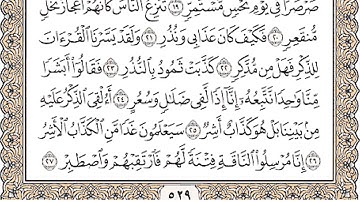 صَرْصَرًا فِي يَوْمِ نَحْسٍ مُّسْتَمِرٍّ ١٩ تَنزِعُ النَّاسَ كَأَنَّهُمْ أَعْجَازُ نَخْلٍ
مُّنقَعِرٍ ٢٠ فَكَيْفَ كَانَ عَذَابِي وَنُذُرِ ٢١ وَلَقَدْ يَسَّرْنَا الْقُرْءَانَ
لِلذِّكْرِ فَهَلْ مِن مُّدَّكِرٍ ٢٢ كَذَّبَتْ ثَمُودُ بِالنُّذُرِ ٢٣ فَقَالُوا أَبَشَرًا
مِّنَّا وَاحِدًا نَّتَّبِعُهُ إِنَّا إِذًا لَّفِي ضَلَالٍ وَسُعُرٍ ٢٤ أَءُلْقِيَ الذِّكْرُ عَلَيْهِ
مِنْ بَيْنِنَا بَلْ هُوَ كَذَّابٌ أَشِرٌ ٢٥ سَيَعْلَمُونَ غَدًا مَّنِ الْكَذَّابُ الْأَشِرُ
٢٦ إِنَّا مُرْسِلُوا النَّاقَةِ فِتْنَةً لَّهُمْ فَارْتَقِبْهُمْ وَاصْطَبِرْ ٢٧
٥٢٩